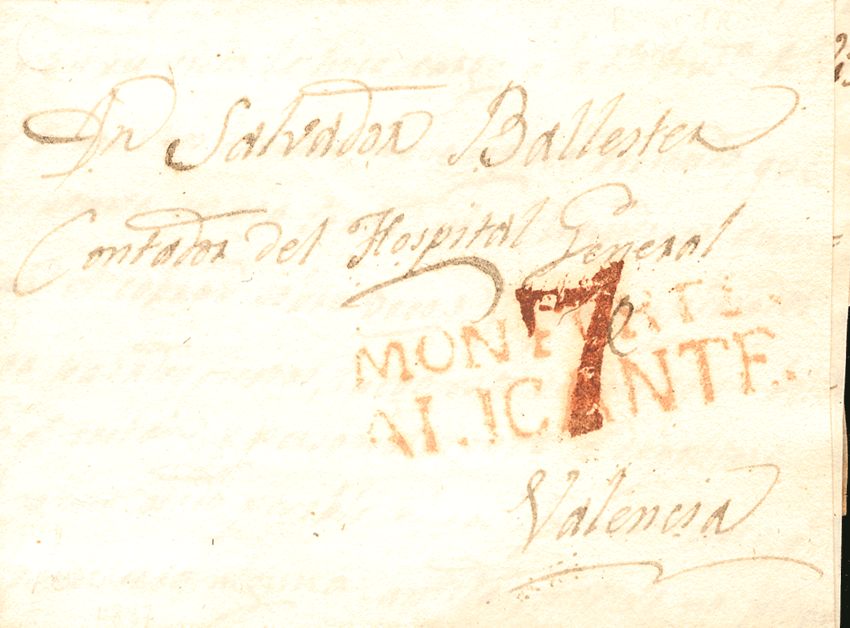 Dn Salvador Ballester
Contador del Hospital General
7
MONOVAR
ALICANTE.
Valencia